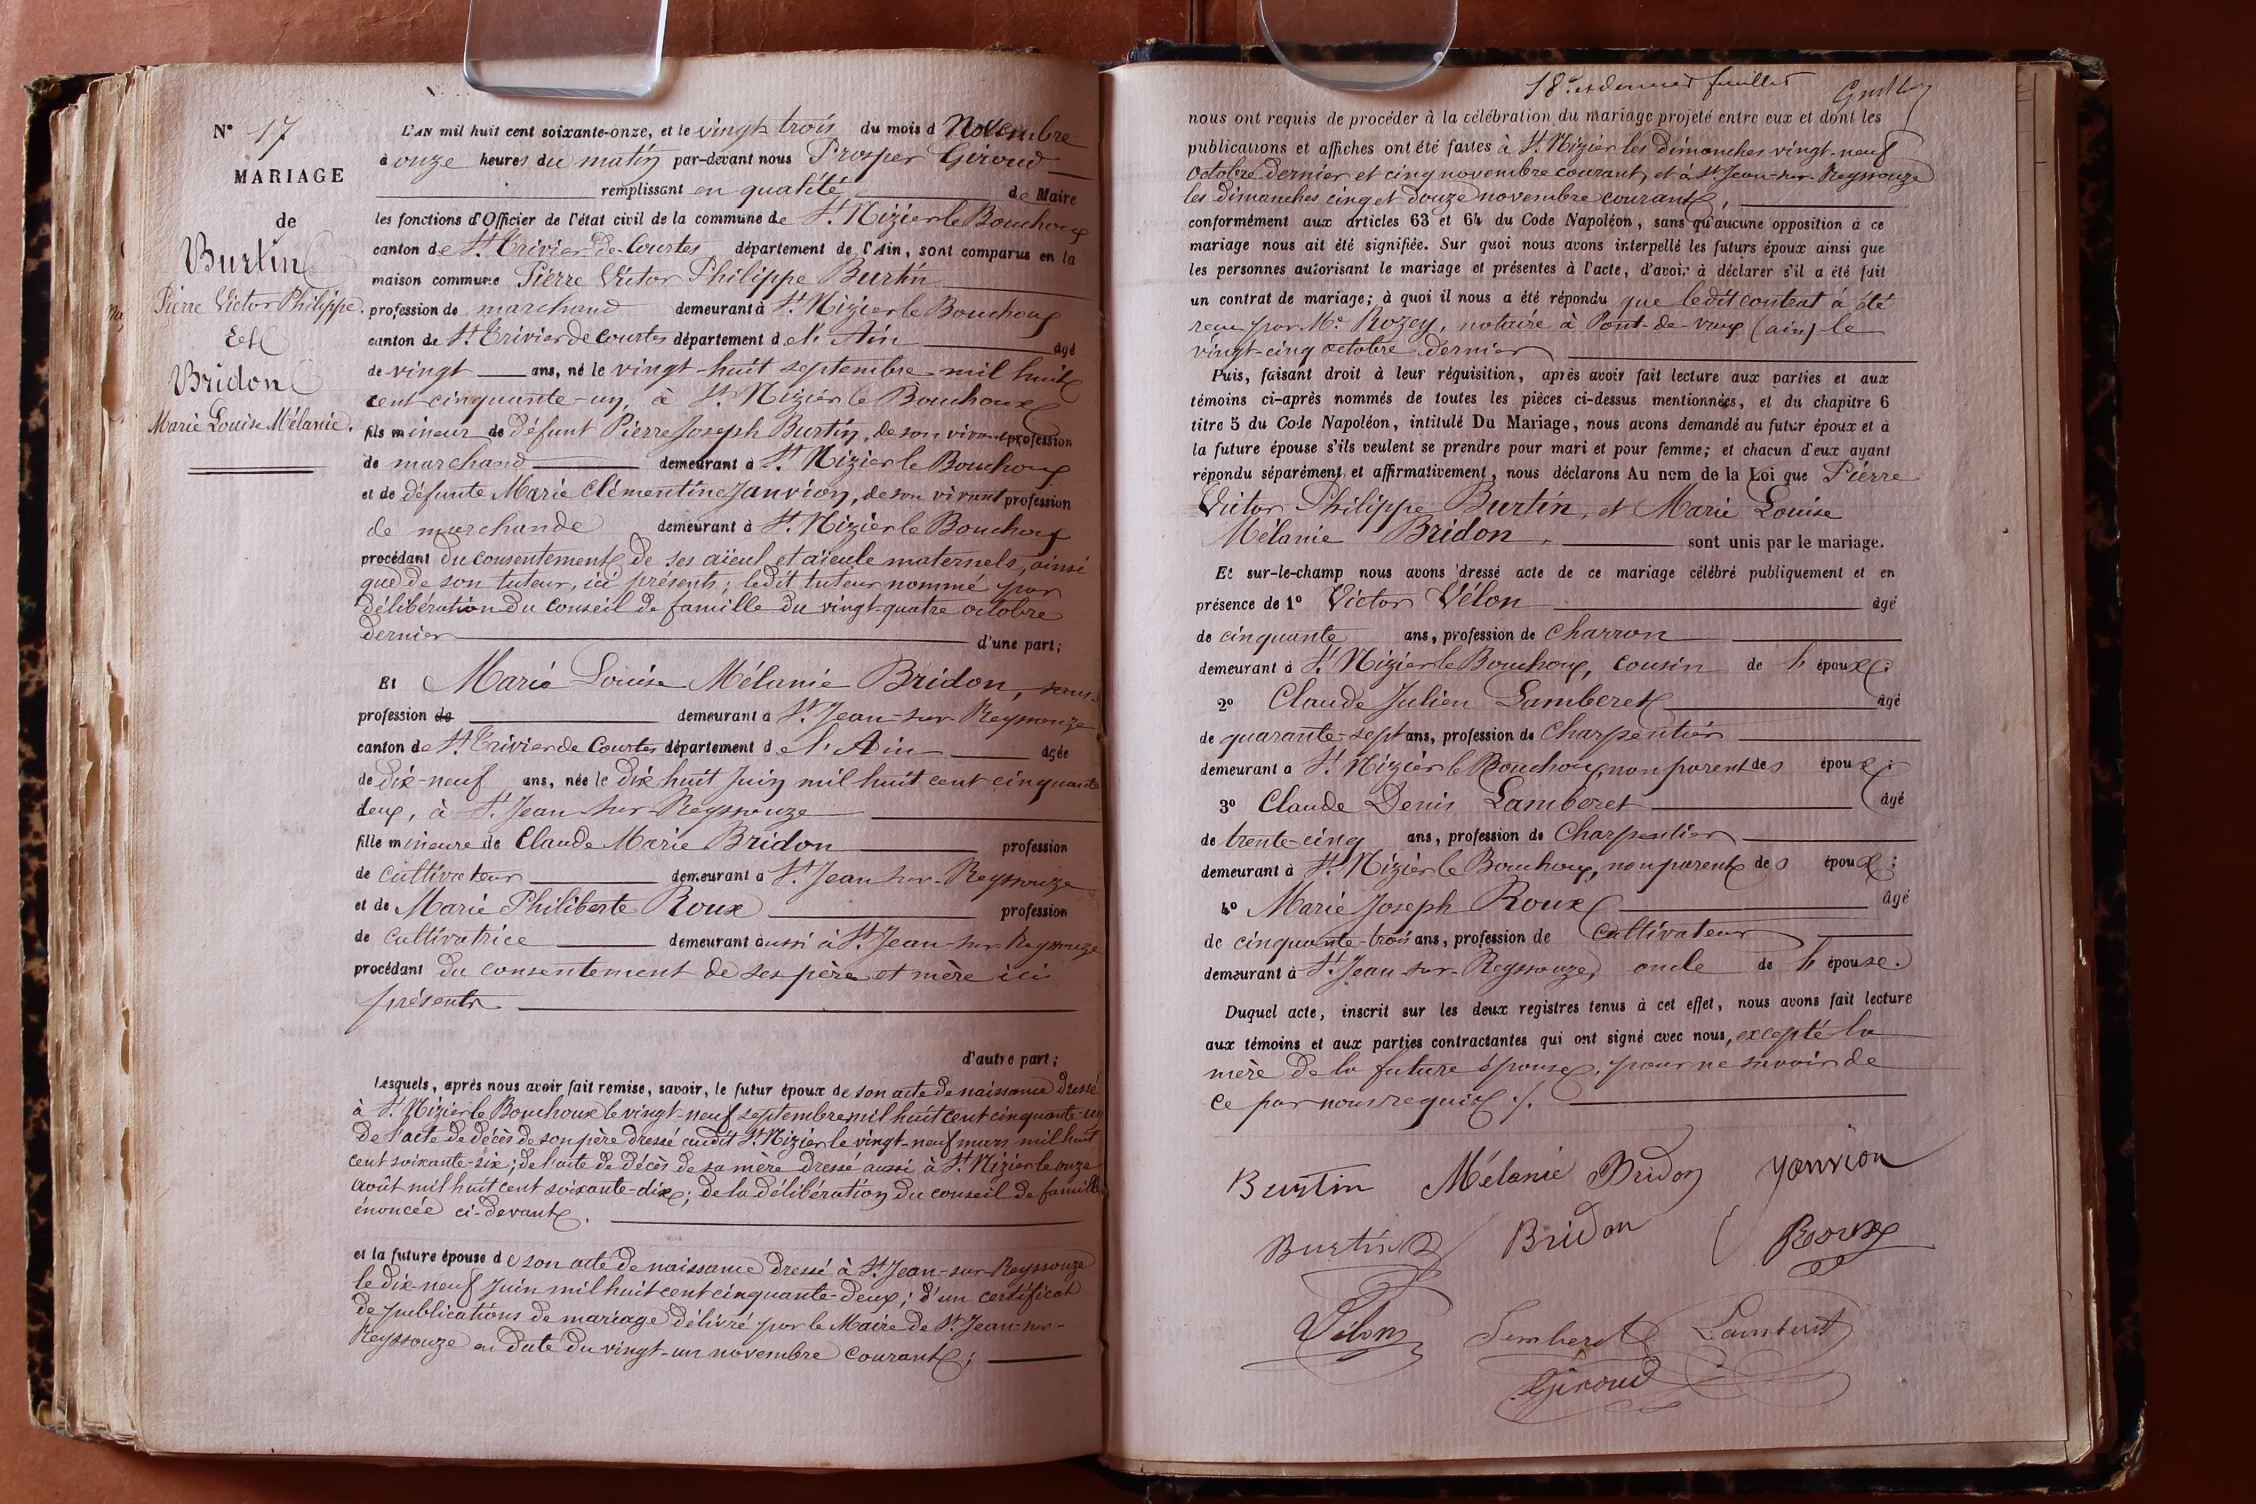 N° 17
MARIAGE
de
Burtin
Pierre Victor Philippe.
Et
Bridon
Marie Louise Mélanie.
L'AN mil huit cent soixante-onze, et le vingt trois du mois d Novembre
à onze heures du matin par-devant nous Prosper Giroud
remplissant en qualité de Maire
les fonctions d'Officier de l'état civil de la commune de St Nizier le Bouchoux
canton de St Trivier-de-Courtes département de l'Ain, sont comparus en la
maison commune Pierre Victor Philippe Burtin
profession de marchand demeurant à St Nizier le Bouchoux
canton de St Trivier de Courtes département de l'Ain âgé
de vingt ans, né le vingt-huit septembre mil huit
cent cinquante-un, à St Nizier le Bouchoux
fils mineur de défunt Pierre Joseph Burtin, de son vivant profession
de marchand demeurant à St Nizier le Bouchoux
et de défunte Marie Clémentine Janvion, de son vivant profession
de marchande demeurant à St Nizier le Bouchoux
procédant du consentement de ses aïeul et aïeule maternels, ainsi
que de son tuteur, ici présents; ledit tuteur nommé par
délibération du conseil de famille du vingt-quatre octobre
dernier d'une part;
Et Marie Louise Mélanie Bridon, sans
profession de demeurant à St Jean-sur-Reyssouze
canton de St Trivier de Courtes département de l'Ain âgée
de dix-neuf ans, née le dix huit Juin mil huit cent cinquante
deux, à St Jean sur Reyssouze
fille mineure de Claude Marie Bridon profession
de cultivateur demeurant à St Jean sur-Reyssouze
et de Marie Philiberte Roux profession
de cultivatrice demeurant aussi à St Jean-sur Reyssouze
procédant du consentement de ses père et mère ici
présents
d'autre part;
Lesquels, après nous avoir fait remise, savoir, le futur époux de son acte de naissance dressé
à St Nizier le Bouchoux le vingt-neuf septembre mil huit cent cinquante-un
de l'acte de décès de son père dressé audit St Nizier le vingt-neuf mars mil huit
cent soixante-six; de l'acte de décès de sa mère dressé aussi à St Nizier le onze
août mil huit cent soixante-dix; de la délibération du conseil de famille
énoncée ci-devant.
et la future épouse de son acte de naissance dressé à St Jean-sur-Reyssouze
le dix-neuf Juin mil huit cent cinquante-deux; d'un certificat
de publications de mariage délivré par le Maire de St Jean-sur-
Reyssouze en date du vingt-un novembre courant;
18e et dernier feuillet
nous ont requis de procéder à la célébration du mariage projeté entre eux et dont les
publications et affiches ont été faites à St Nizier les dimanches vingt-neuf
octobre dernier et cinq novembre courant, et à St Jean-sur-Reyssouze
les dimanches cinq et douze novembre courant,
conformément aux articles 63 et 64 du Code Napoléon, sans qu'aucune opposition a ce
mariage nous ait été signifiée. Sur quoi nous avons interpellé les futurs époux ainsi que
les personnes autorisant le mariage et présentes à l'acte, d'avoir à déclarer s'il a été fait
un contrat de mariage; à quoi il nous a été répondu que ledit contrat a été
reçu par Me Rozey, notaire à Pont-de-vaux (ain) le
vingt-cinq octobre dernier
Puis, faisant droit à leur réquisition, après avoir fait lecture aux parties et aux
témoins ci-après nommés de toutes les pièces ci-dessus mentionnées, et du chapitre 6
titre 5 du Code Napoléon, intitulé Du Mariage, nous avons demandé au futur époux et à
la future épouse s'ils veulent se prendre pour mari et pour femme; et chacun d'eux ayant
répondu séparément et affirmativement, nous déclarons Au nom de la Loi que Pierre
Victor Philippe Burtin, et Marie Louise
Mélanie Bridon, sont unis par le mariage.
Et sur-le-champ nous avons dressé acte de ce mariage célébré publiquement et en
présence de 1° Victor Vélon âgé
de cinquante ans, profession de charron
demeurant à St Nizier le Bouchoux, cousin de l'époux;
2° Claude Julien Lamberet âgé
de quarante-sept ans, profession de charpentier
demeurant à St Nizier le Bouchoux, non parent des époux;
3° Claude Denis Lamberet âgé
de trente-cinq ans, profession de charpentier
demeurant à St Nizier le Bouchoux, non parent des époux;
4° Marie Joseph Roux âgé
de cinquante-trois ans, profession de cultivateur
demeurant à St Jean-sur-Reyssouze, oncle de l'épouse.
Duquel acte, inscrit sur les deux registres tenus à cet effet, nous avons fait lecture
aux témoins et aux parties contractantes qui ont signé avec nous, excepté la
mère de la future épouse, pour ne savoir de
ce par nous requis ./.
Burtin Mélanie Bridon Janvion
Burtin Bridon Roux
Vélon Lamberet Lamberet
Giroud